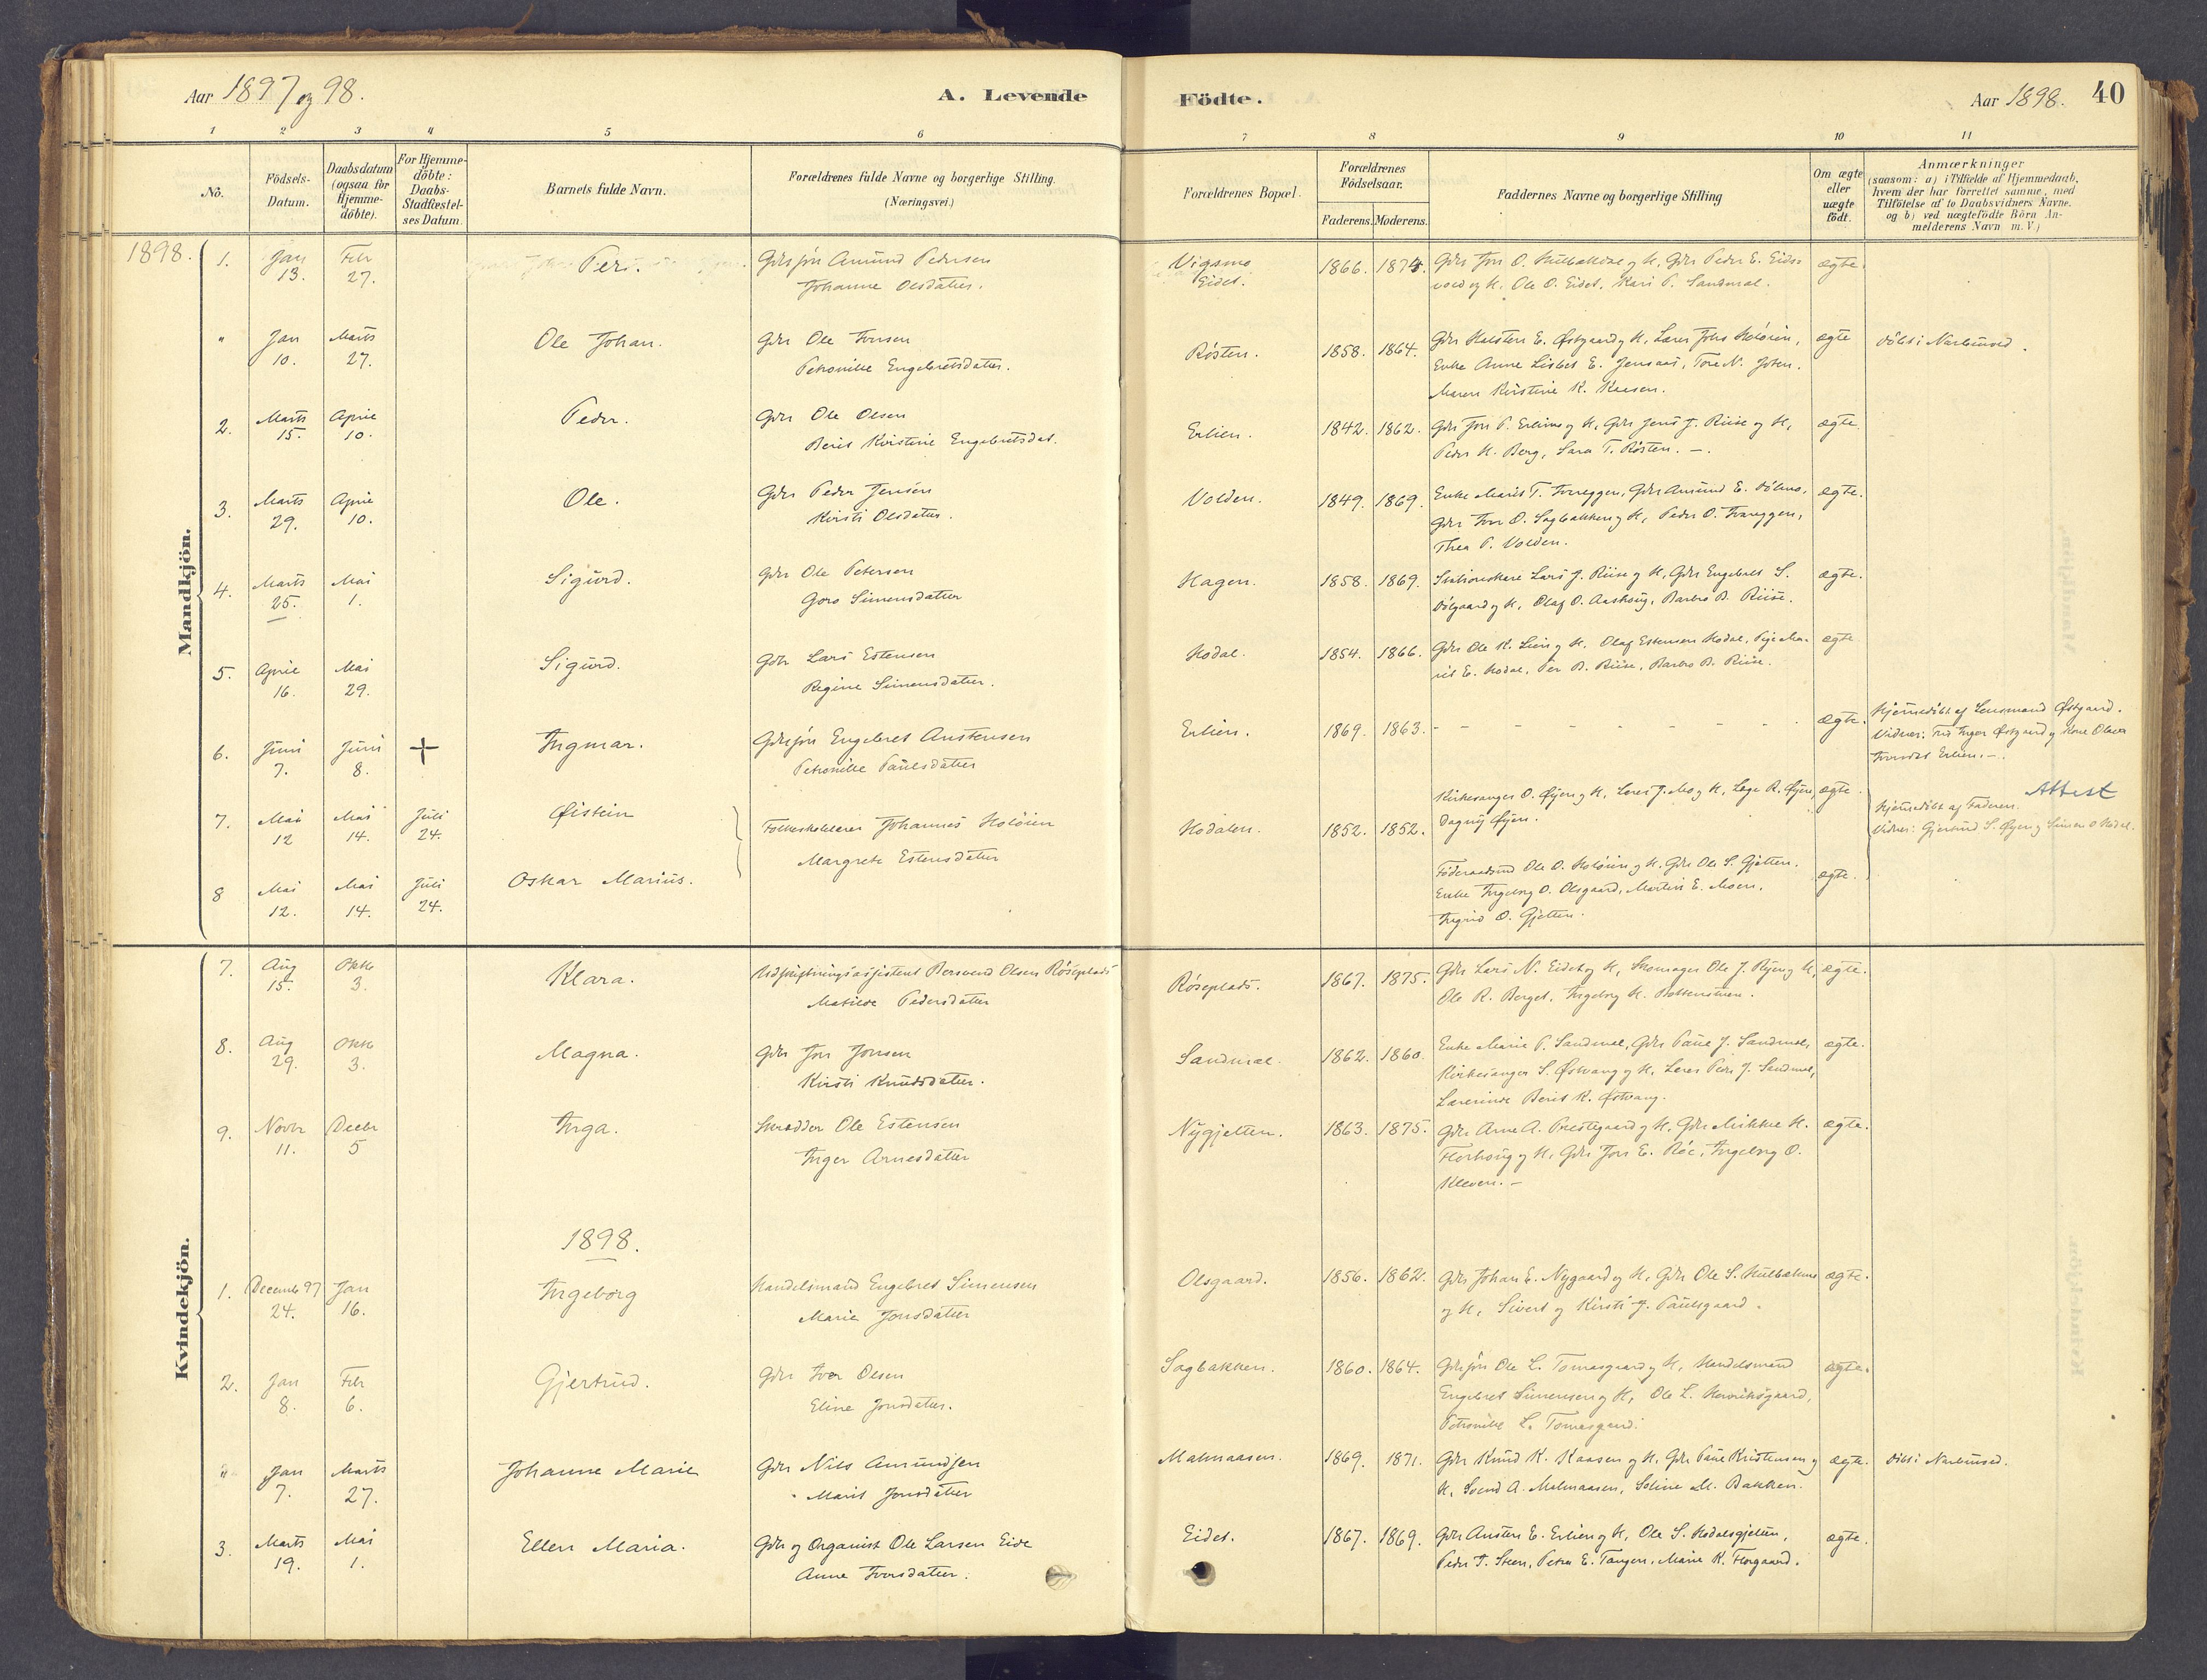 Aar 1897 og 98.
A. Levende
Födte.
Aar 1898.
40
1 2 3 4 5 6 7 8 9 10 11
No.
Födsels-
Datum.
Daabsdatum
(ogsaa for
Hjemme-
döbte).
For Hjemme-
döbte:
Daabs-
Stadfæstel-
ses Datum.
Barnets fulde Navn.
Forældrenes fulde Navne og borgerlige Stilling.
(Næringsvei.)
Forældrenes Bopæl.
Forældrenes
Födselsaar.
Faderens. Moderens.
Faddernes Navne og borgerlige Stilling
Om ægte
eller
uægte
födt.
Anmærkninger
(saasom: a) i Tilfælde af Hjemmedaab,
hvem der har forrettet samme, med
Tilföielse af to Daabsvidners Navne.
og b) ved uægtefödte Börn An-
melderens Navn m. V.)
Mandkjön.
1898.
1. Jan 13. Febr 27. Peri.
Gdrsjøn Amund Pedersen
Johanne Olsdatter.
Vigamo
Eidet.
1866. 1874.
Gdr Jon O. og K, Gdr Peder E. Eids-
vold og K. Ole O. Eidet, Kari P. Sandmæl.
ægte.
" Jan 10. Marts 27. Ole Johan.
Gdr Ole Iversen
Petronille Engebretsdatter.
Røsten.
1858. 1864.
Gdr Halsten E. Østgaard og K, Lærer Johs Holöien,
Enke Anne Lisbet E. Jensaas, Tore N. Joten.
Maren Kirstine K. Kaasen.
ægte
döbt i Narbuvod.
2. Marts 15. April 10. Peder.
Gdr Ole Olsen
Berit Kristine Engebretsdat.
Erlien.
1842. 1862.
Gdr Jon P. Erlien og K, Gdr Jens J. Riise og K,
Peder H. Berg, Sara T. Røsten. —.
ægte.
3. Marts 29. April 10. Ole.
Gdr Peder Jensen
Kirsti Olsdatter.
Volden.
1849. 1869.
Enke Marit T. Tronæggen, Gdr Amund E.
Gdr Iver O. Sagbakken og K, Peder O. Tronæggen,
Thea P. Volden.
ægte.
4. Marts 25. Mai 1. Sigurd.
Gdr Ole Petersen
Goro Simensdatter
Hagen.
1858. 1869.
Stationskarl Lars J. Riise og K, Gdr Engebret S.
Dølgaard og K, Olaf O. Aashoug, Barbro B. Riise.
ægte.
5. April 16. Mai 29. Sigurd.
Gdr Lars Estensen
Regine Simensdatter.
Hodal.
1854. 1866.
Gdr Ole K. Lien og K. Olaf Estensen Hodal, Pige Ma-
rit E. Hodal, Per B. Riise, Barbro B. Riise.
ægte
6. Juni 7. Juni 8. + Ingmar.
Gdrsjøn Engebret Austensen
Petronille Paulsdatter
Erlien.
1869. 1863.
- - - - - - -
ægte.
Hjemedöbt af Lensmand Østgaard.
Vidner: Fru Inger Østgaard og Kone Olava
Erlien. —.
7. Mai 12 Mai 14. Juli 24. Øistein
Folkeskolelærer Johannes Holöien
Margrete Estensdatter
Hodalen.
1852. 1852.
Kirkesanger O. Øyen og K, Lærer J. Mo og K, Læge R. Øyen,
Dagny Øyen.
ægte.
Attest
Hjemedöbt af Faderen.
Vidner: Gjertrud S. Øyen og Simen O Hodal.
8 Mai 12. Mai 14. Juli 24. Oskar Marius.
Föderaadsmd Ole O. Holöien og K. Gdr Ole S. Gjelten.
Enke Ingeborg O. Olsgaard, Martin E. Moen,
Ingrid O. Gjelten.
ægte.
Kvindekjön.
7. Aug 15. Oktb 3. Klara.
Udskiftningsassistent Bersvend Olsen Röseplads
Matilde Pedersdatter
Röseplads.
1867. 1875.
Gdr Lars N. Eidet og K, Skomager Ole J. Ryen og K,
Ole R. Berget, Ingeborg K.
ægte.
8. Aug 29. Oktb 3. Magna.
Gdr Jon Jonsen
Kirsti Knutsdatter.
Sandmæl.
1862. 1860.
Enke Marie P. Sandmæl, Gdr Paul J. Sandmæl,
Kirkesanger S. Østvang og K, Lærer Peder J. Sandmæl,
Lærerinde Berit K. Østvang.
ægte.
9. Novbr 11. Decbr 5 Inga.
Skrædder Ole Estensen
Inger Arnesdatter
Nygjelten.
1863. 1875.
Gdr Arne A. Prestegaard og K. Gdr Mikkel H.
Florhoug og K, Gdr Jon E. Röe, Ingeborg O.
Kleven. —
ægte.
1898.
1. Decemb 97 24. Jan 16. Ingeborg
Handelsmand Engebret Simensen
Marie Jonsdatter
Olsgaard.
1856. 1862.
Gdr Johan E. Nygaard og K, Gdr Ole S.
og K, Sivert og Kirsti J. Paulsgaard.
ægte.
2. Jan 8. Febr 6. Gjertrud.
Gdr Iver Olsen
Eline Jonsdatter.
Sagbakken.
1860. 1864.
Gdrsjön Ole L. Tomasgaard og K, Handelsmand
Engebret Simensen og K, Ole L. Henriksgaard,
Petronille L. Tomasgaard.
ægte.
" Jan 7. Marts 27. Johanne Marie
Gdr Nils Amundsen
Marit Jonsdatter
Malmaasen.
1869. 1871.
Gdr Knud K. Kaasen og K, Gdr Paul Kristensen og
K, Svend A. Malmaasen, Soline M. Bakken.
ægte.
döbt i Narbuvod.
3. Marts 19. Mai 1. Ellen Maria.
Gdr og Organist Ole Larsen Eide
Anne Iversdatter.
Eidet.
1867. 1869.
Gdr Austen E. Erlien og K, Ole S. Hodalsgjelten,
Peder T. Steen, Petra E. Tangen, Marie K. Horgaard.
ægte.